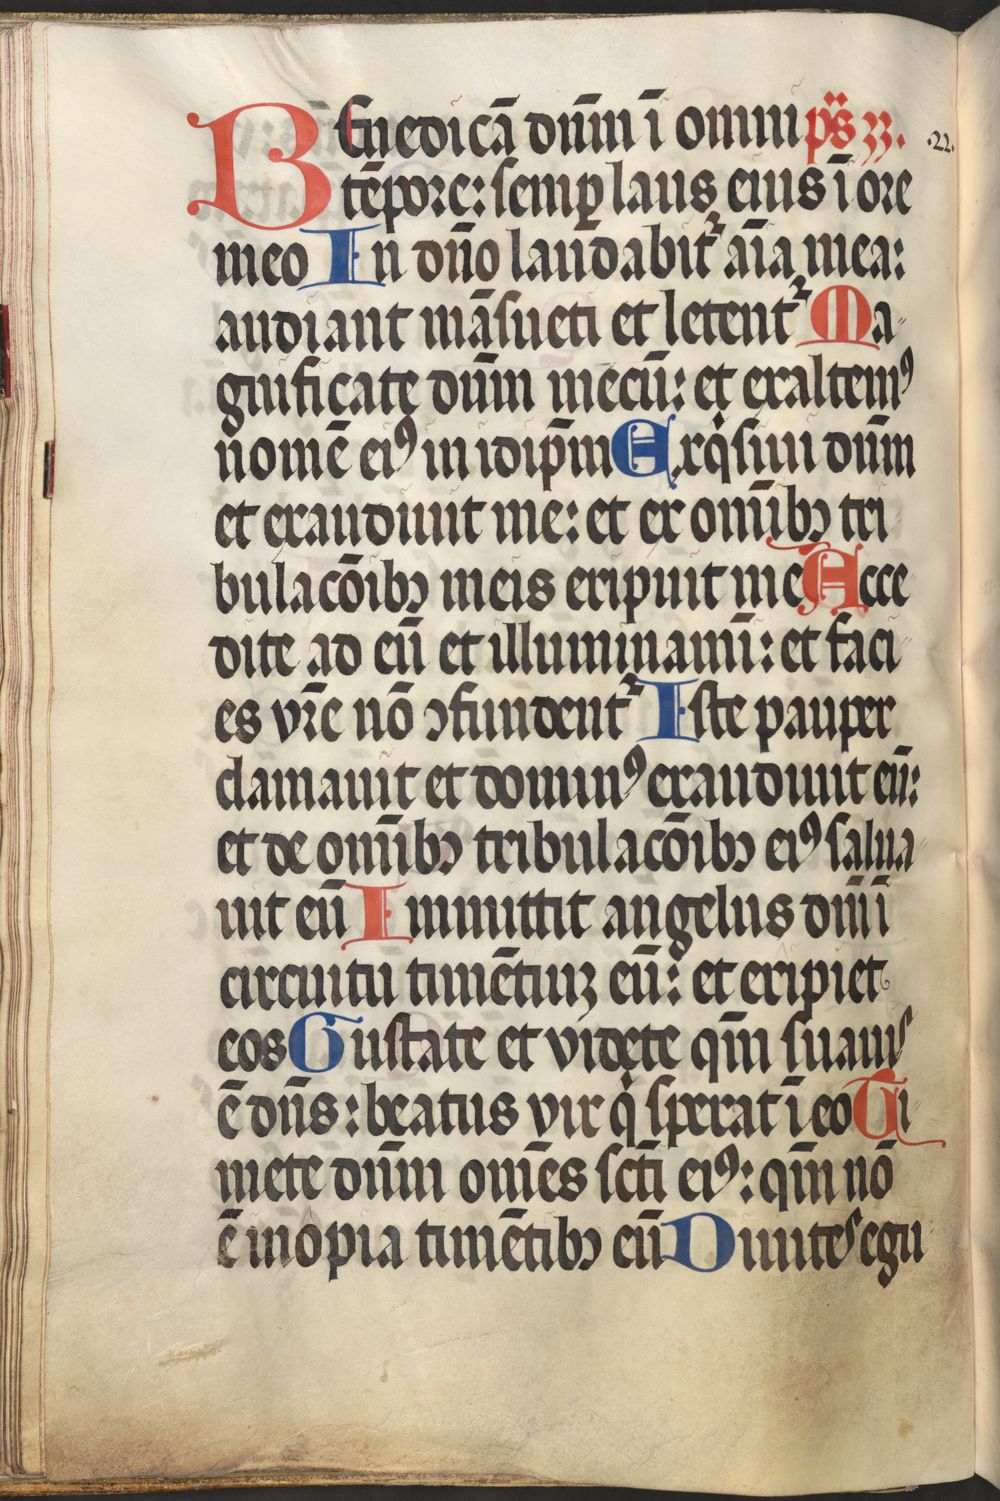 Benedicā dn̄m ī omni p̄s 33. ·22.
tēpore: semꝑ laus eius ī ore
meo In dn̄o laudabitᷣ aīa mea:
audiant māsueti et letentᷣ Ma-
gnificate dn̄m mecū: et exaltemꝰ
nomē eiꝰ in idip̄m Exqͥsiui dn̄m
et exaudiuit me: et ex omībꝫ tri
bulacōibꝫ meis eripuit me Acce
dite ad eū et illuminamī: et faci-
es vr̄e nō ꝯfundentᷣ Iste pauper
clamauit et dominꝰ exaudiuit eū:
et de omībꝫ tribulacōibꝫ eiꝰ salua-
uit eū Immittit angelus dn̄i ī
circuitu timētiuꝫ eū: et eripiet
eos Gustate et videte qm̄ suauis
ē dn̄s: beatus vir qͥ sperat ī eo Ti-
mete dn̄m om̄es scī eiꝰ: qm̄ nō
ē inopia timētibꝫ eū Diuites egu-